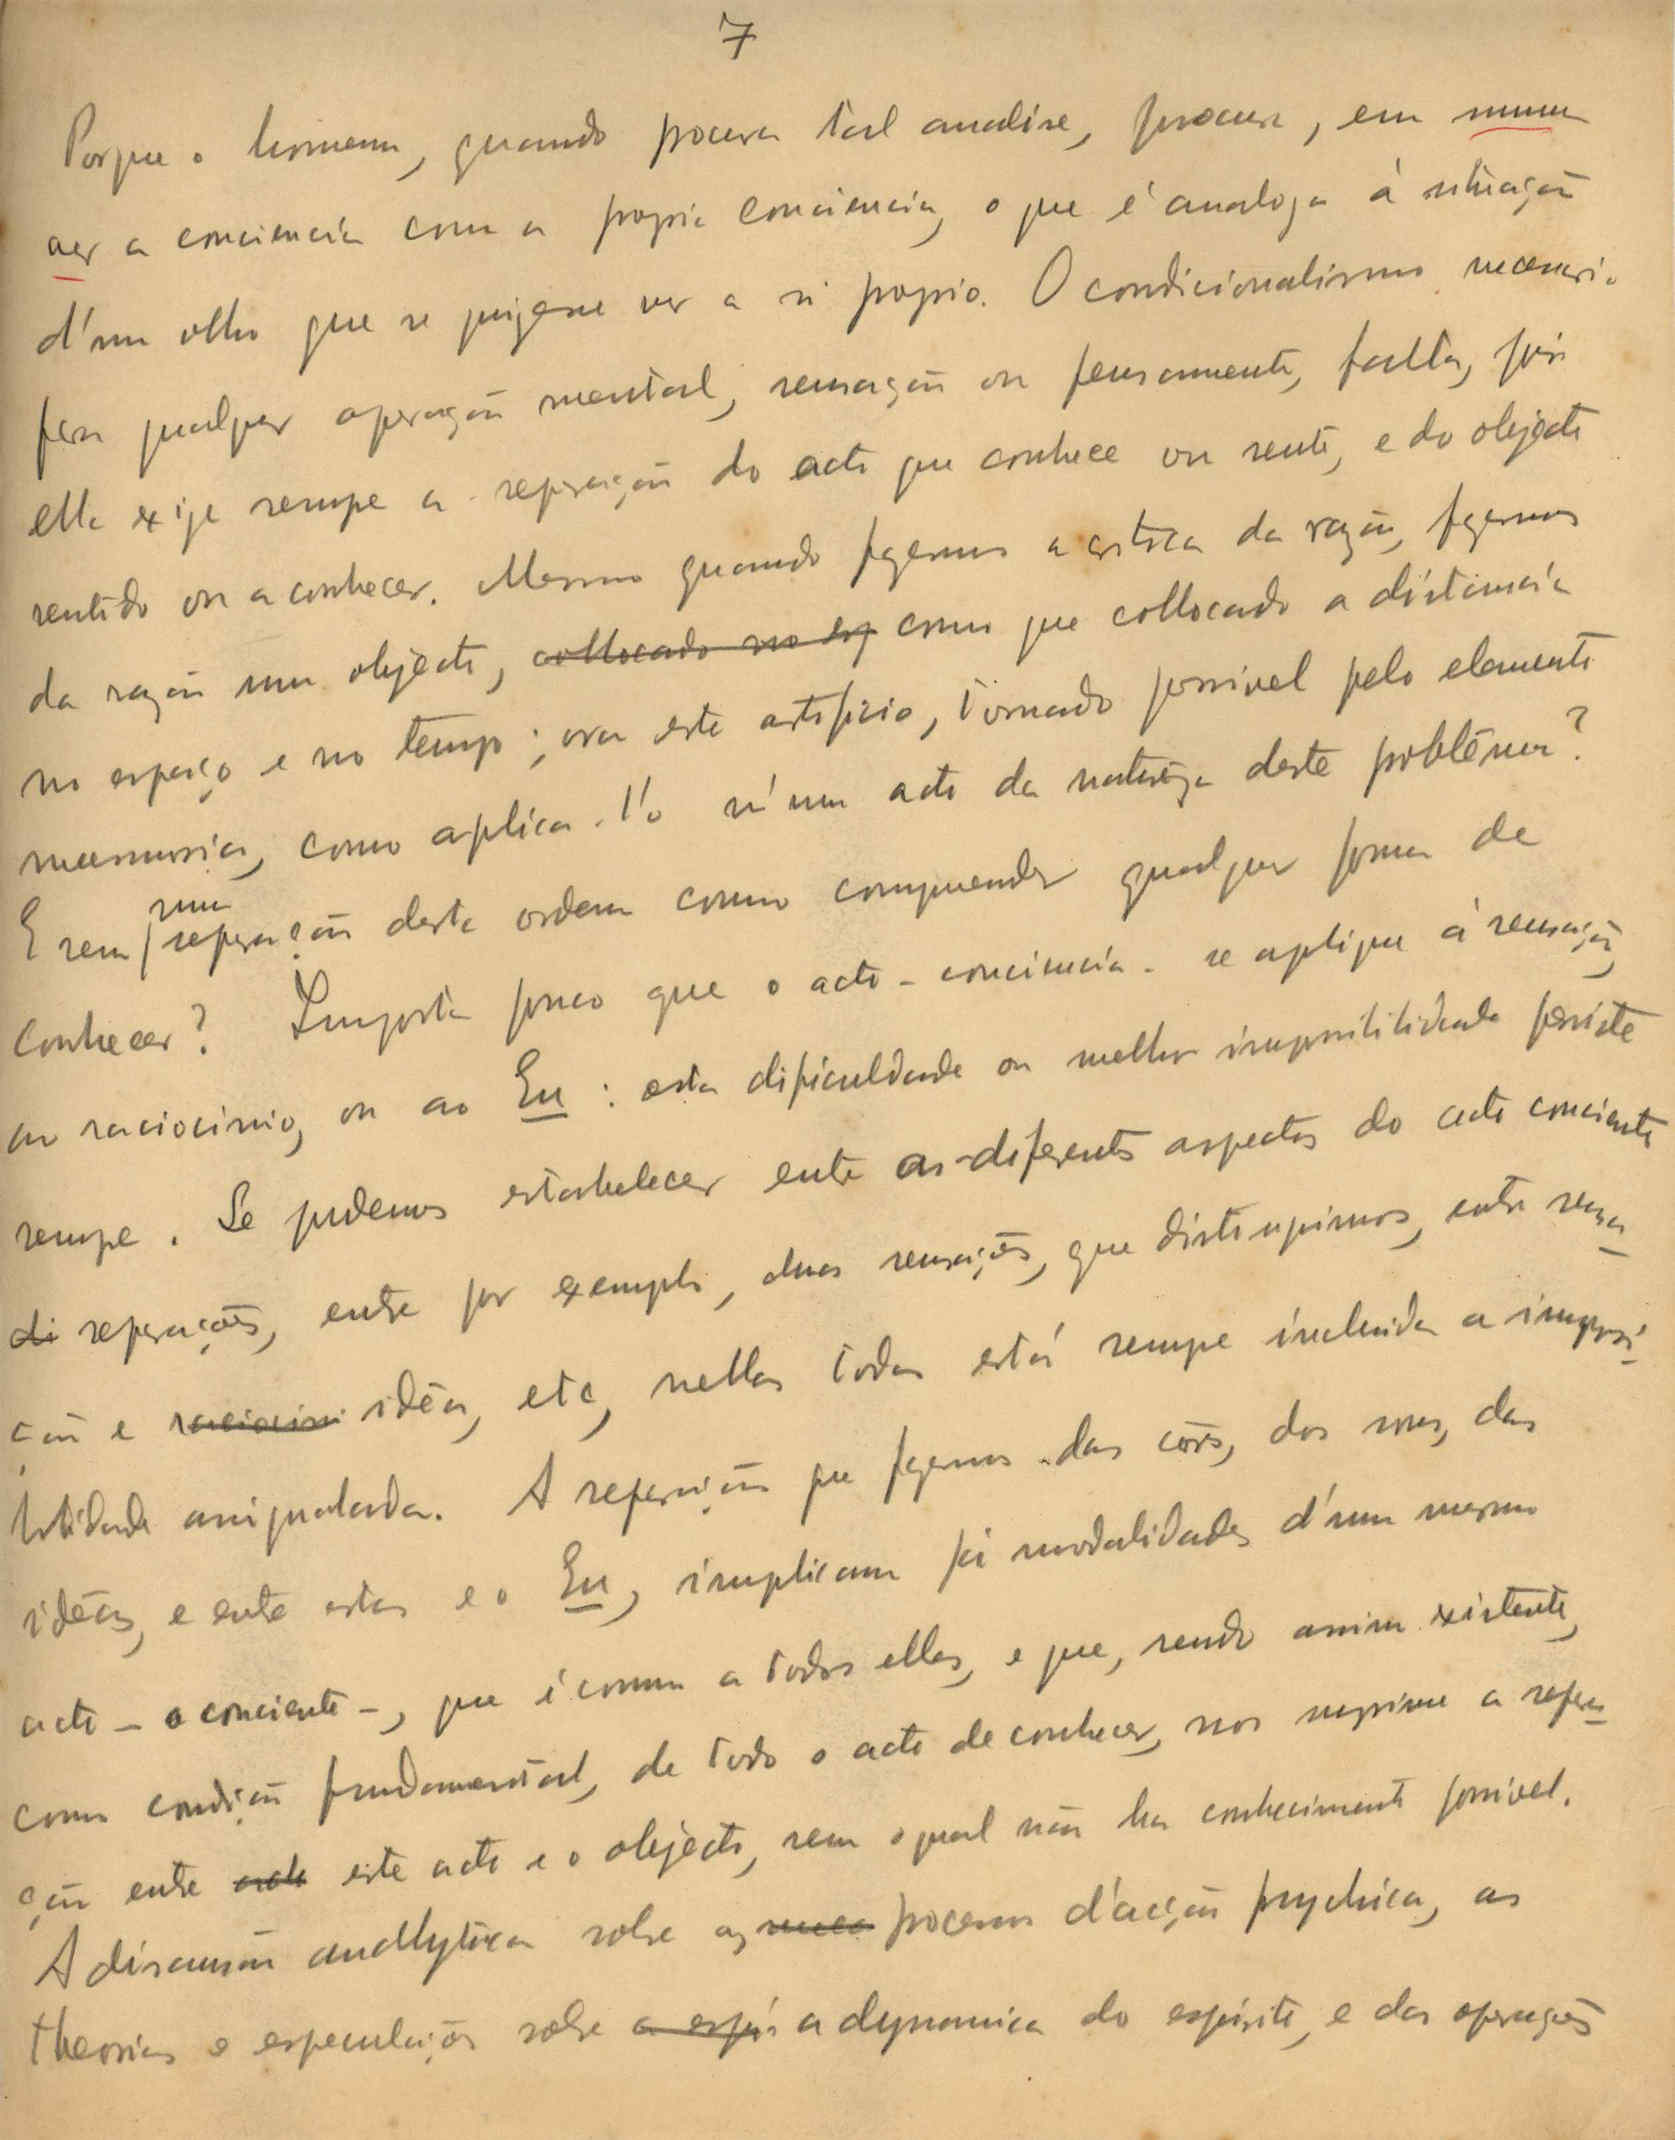 7
Porque o homem, quando procura tal analise, procura, em summa
ver a conciencia com a propria conciencia, o que é analogo á situação
d'um olho que se quizesse ver a si proprio. O condicionalismo necessario
para qualquer operação mental, sensação ou pensamento, falta, pois
ella exige sempre a separação do acto que conhece ou sente, e do objecto
sentido ou a conhecer. Mesmo quando fazemos a critica da razão, fazemos
da razão um objecto, collocado no esp como que collocado a distancia
no espaço e no tempo; ora este artificio, tornado possivel pelo elemento
memoria, como aplica-l'o n'um acto da natureza deste problêma?
E sem uma separação desta ordem como comprehender qualquer forma de
conhecer? Importa pouco que o acto-conciencia - se aplique á sensação,
ao raciocinio, ou ao Eu: esta dificuldade ou melhor impossibilidade persiste
sempre. Se podemos estabelecer entre os diferentes aspectos do acto conciente
di separações, entre por exemplo, duas sensações, que distinguimos, entre sensa-
ção e raciocini idêa, etc, nellas todas está sempre incluida a impossi-
bilidade assignalada. A separação que fazemos das côres, dos sons, das
idêas, e entre estas e o Eu, implicam já modalidades d'um mesmo
acto - o conciente -, que é comum a todas ellas, e que, sendo assim existente,
como condição fundamental, de todo o acto de conhecer, nos suprime a separa-
ção entre acto este acto e o objecto, sem o qual não ha conhecimento possivel.
A discussão anallytica sobre os processos d'acção psychica, as
theorias e especulações sobre a espi a dynamica do espirito, e das operações